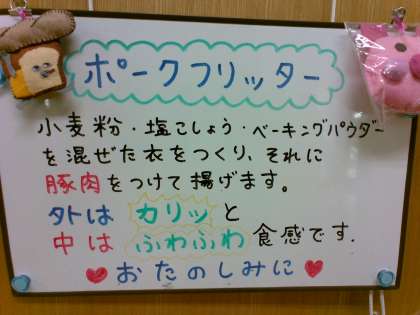 ポークフリッター
小麦粉・塩こしょう・ベーキングパウダー
を混ぜた衣をつくり、それに
豚肉をつけて揚げます。
外は カリッ と
中は ふわふわ 食感です.
♥おたのしみに♥